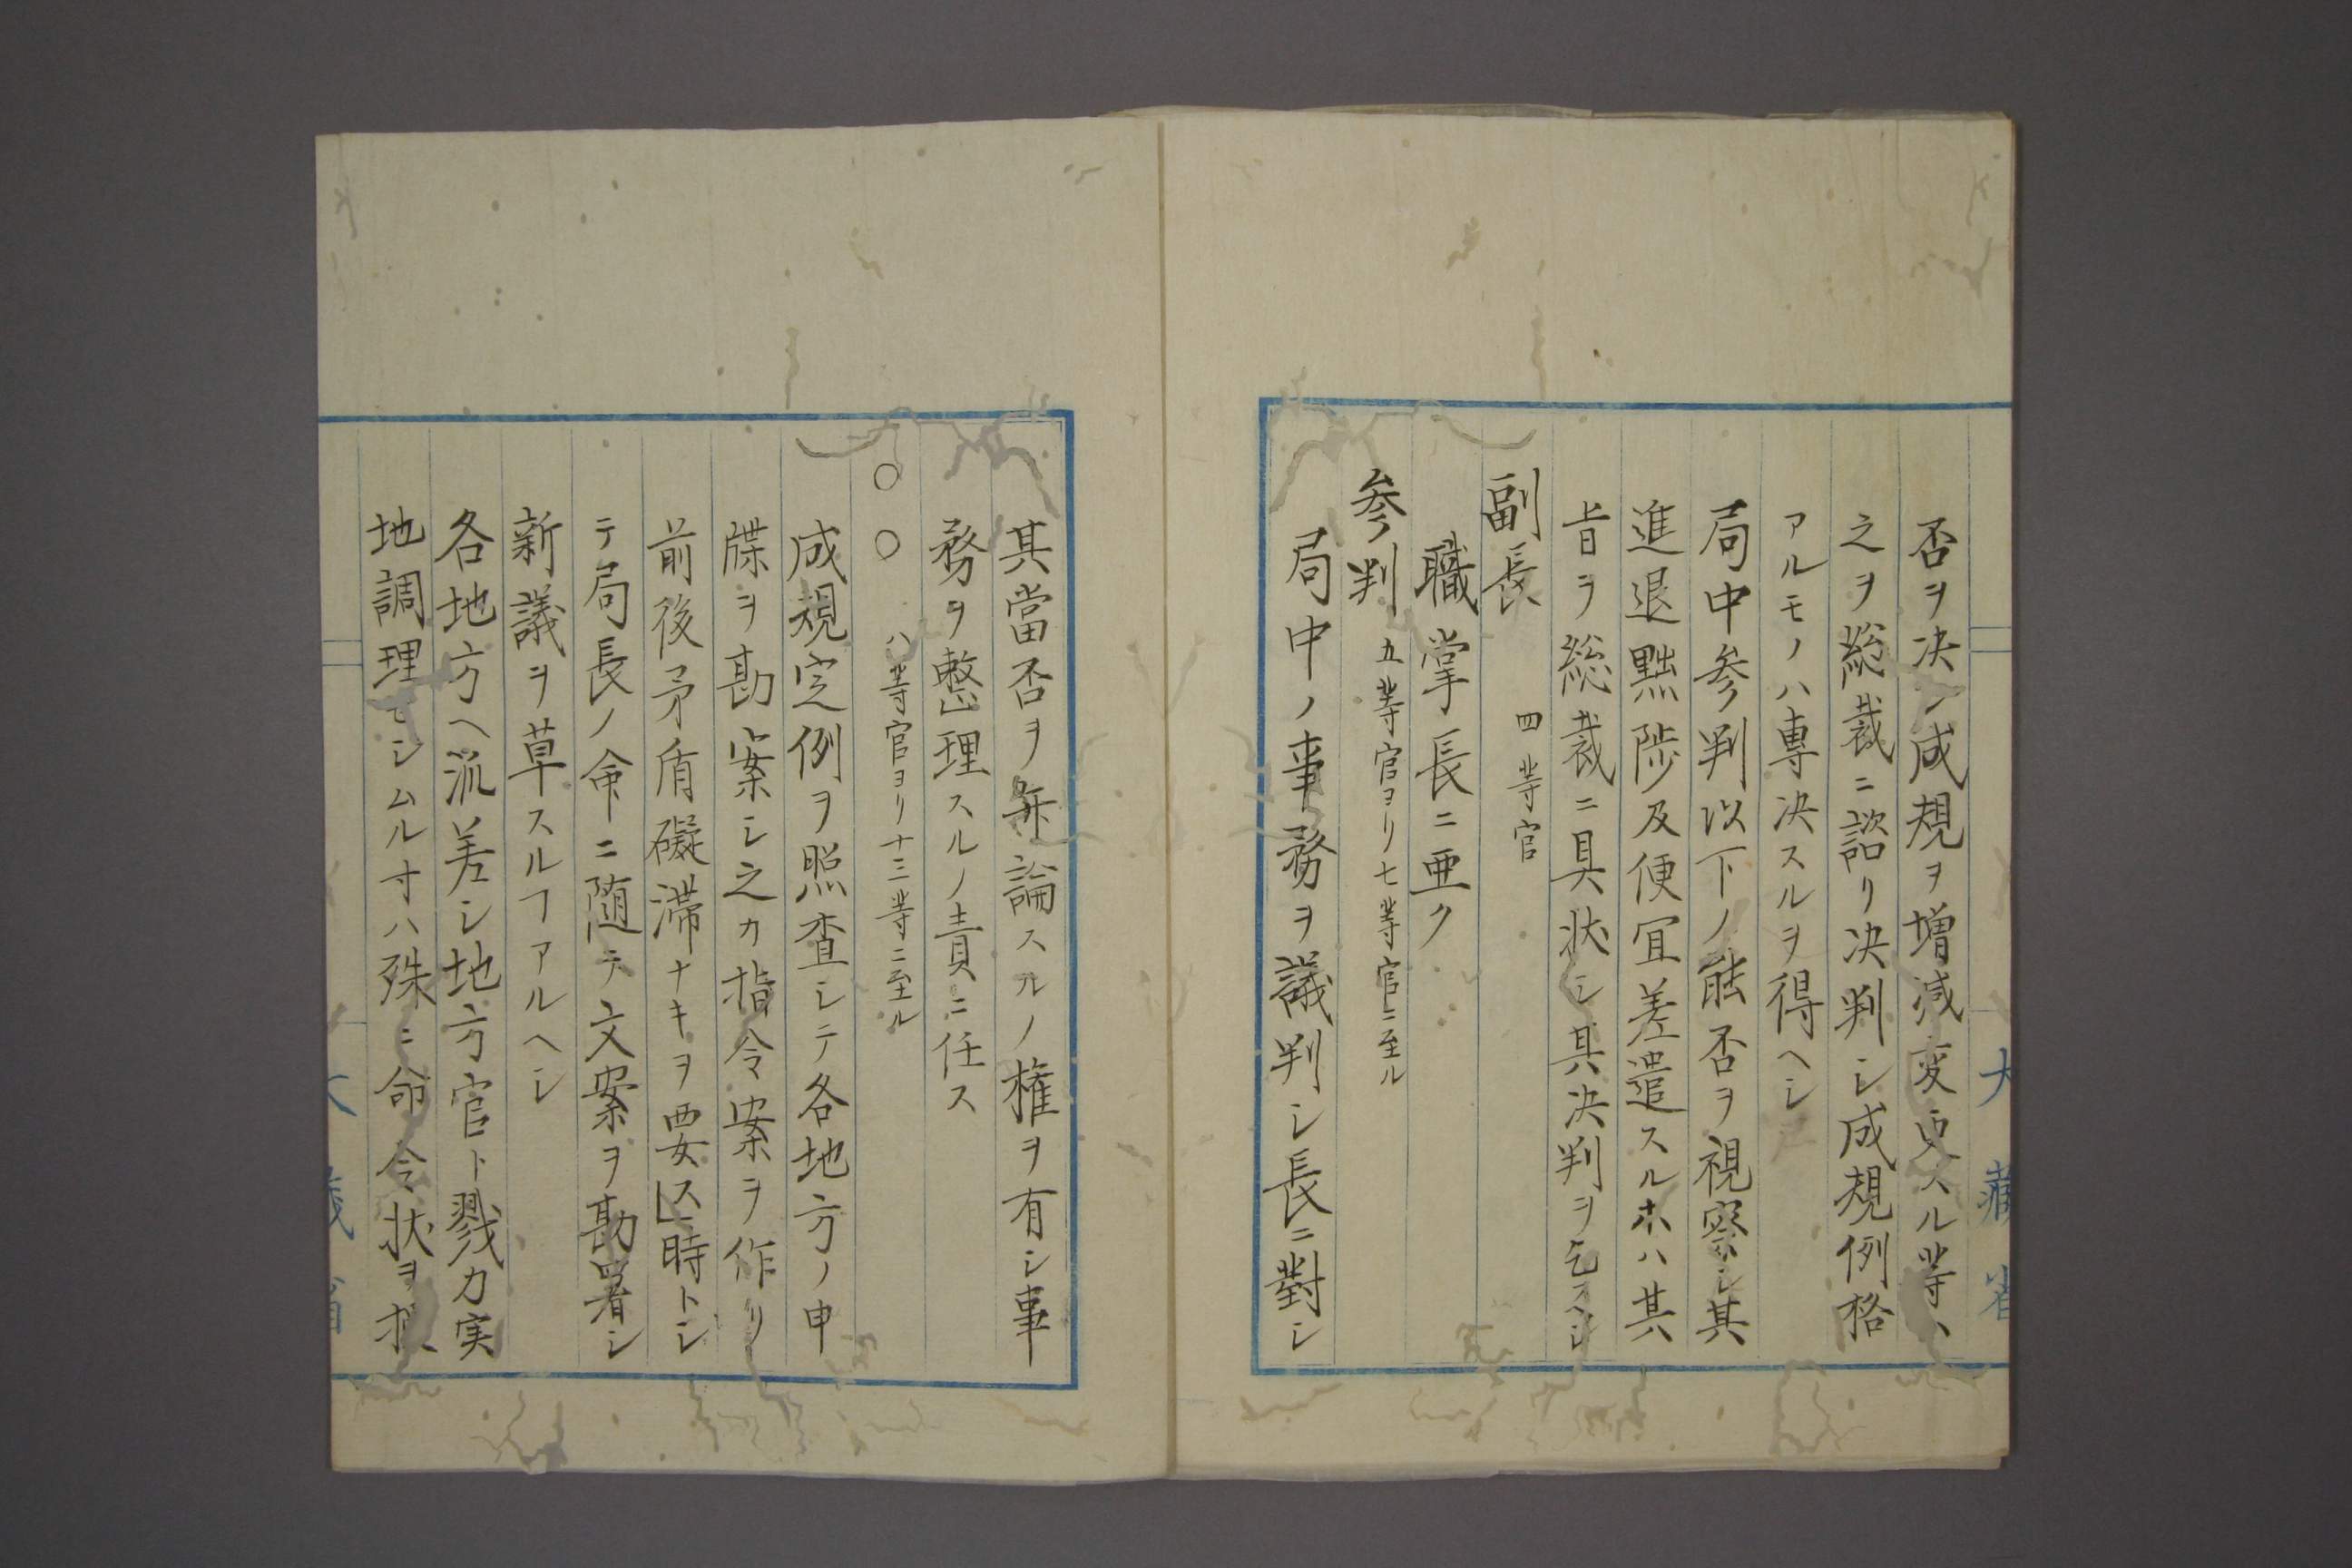 否ヲ决シ成規ヲ増减変更スル等ハ
之ヲ総裁ニ諮リ决判シ成規例格
アルモノハ専决スルヲ得ヘシ
局中参判以下ノ能否ヲ視察シ其
進退黜陟及便宜差遣スルホハ其
旨ヲ総裁ニ具状シ其决判ヲ乞フヘシ
副長 四等官
職掌長ニ亜ク
参判 五等官ヨリ七等官ニ至ル
局中ノ事務ヲ議判シ長ニ對シ
大藏省
其當否ヲ弁論スルノ権ヲ有シ事
務ヲ整理スルノ責ニ任ス
〇〇 八等官ヨリ十三等ニ至ル
成規定例ヲ照査シテ各地方ノ申
牒ヲ勘案シ之カ指令案ヲ作リ
前後矛盾礙滞ナキヲ要ス時トシ
テ局長ノ命ニ随テ文案ヲ勘署シ
新議ヲ草スルヿアルヘシ
各地方ヘ派差シ地方官ト戮力実
地調理セシムル寸ハ殊ニ命令状ヲ